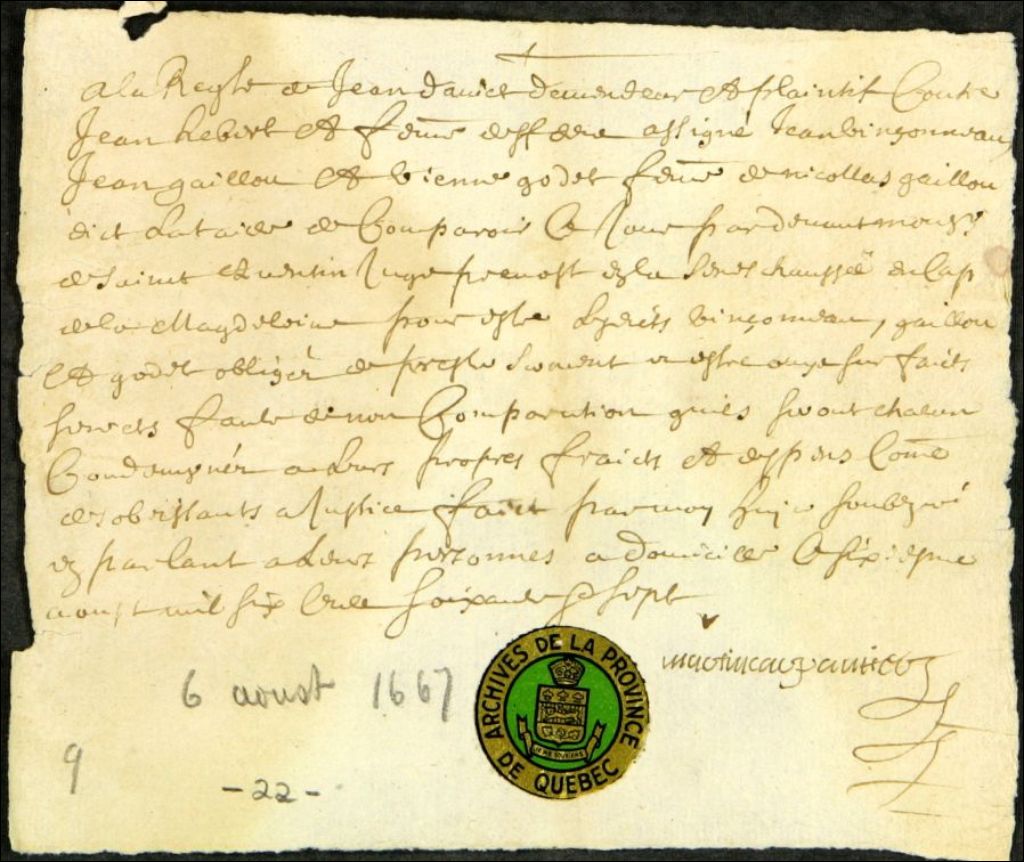 A la Reqte de Jean daniel demandeur et plaintif Contre
Jean hebert et feme deffdeur assigné Jean vinçonneau,
Jean gaillou et vienne godet feme de nicollas gaillou
dict de Comparoir Ce Jour par devant monsr
de saint quentin Juge prevost en la seneschaussée du Cap
de la Magdeleine pour estre Lesdits vinçonneau, gaillou
et godet obligér de prester serment et estre ouys sur faicts
faute de non Comparution quils seront chacun
Condempnér a leurs propres fraicts et despens Come
desobeissants a Justice faict par moy soubzné
en parlant a Leurs personnes a domicille Le sixiesme
aoust mil six Cents soixante et sept
6 aoust 1667
ARCHIVES DE LA PROVINCE DE QUEBEC
9
-22-